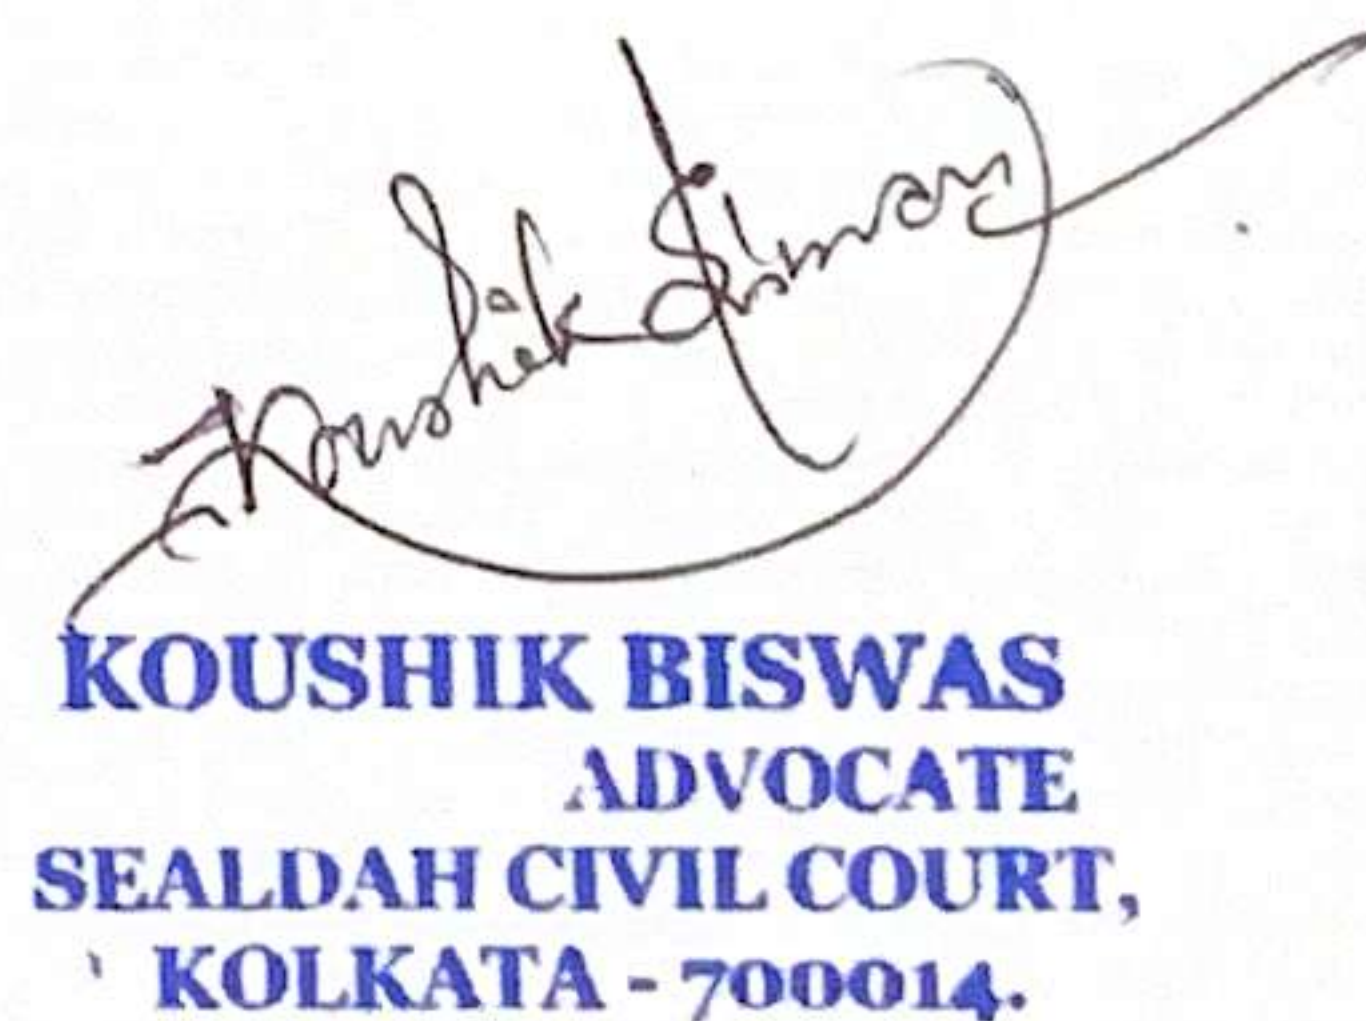 Koushik Biswas
KOUSHIK BISWAS
ADVOCATE
SEALDAH CIVIL COURT,
KOLKATA - 700014.